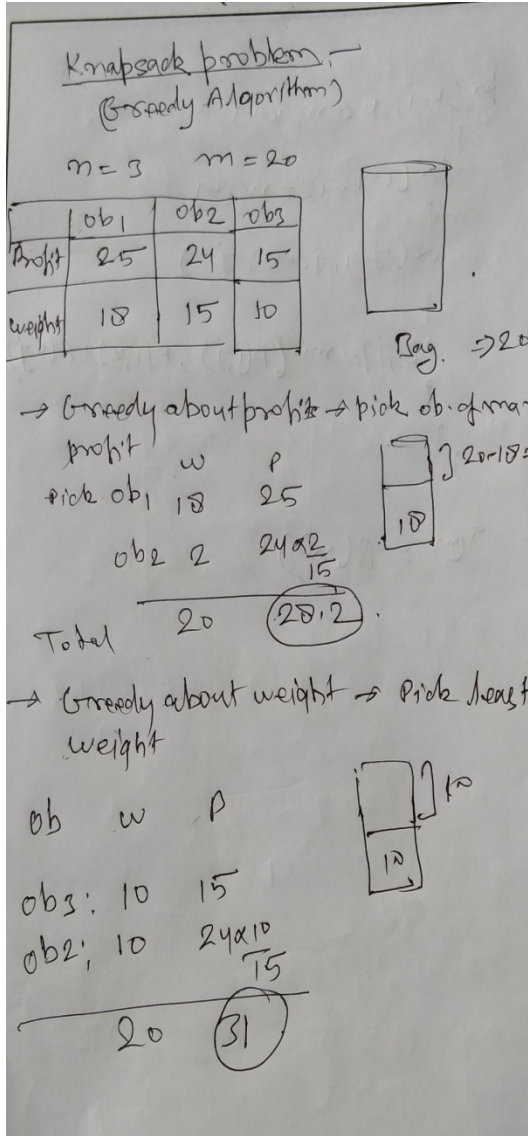 Knapsack problem :-
(Greedy Algorithm)
n = 3 m = 20
ob1 ob2 ob3
Profit 25 24 15
weight 18 15 10
Bag. ⇒ 20
→ Greedy about profit → pick ob. of ma
profit
w P
pick ob1 18 25
] 20-18=
18
ob2 2 24×2/15
Total 20 28.2
→ Greedy about weight → Pick least
weight
ob w P
] 10
10
ob3: 10 15
ob2: 10 24×10/15
20 31